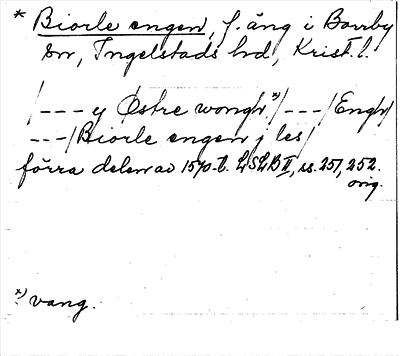 * Biorle engen, f. äng i Borrby
sn, Ingelstads hd, Krist. l.
/--- y Østre wongh *)/---/Engh/
---/Biorle engen j les/
förra delen av 1570-t. LSLB II, ss. 251, 252.
orig.
*) vang.